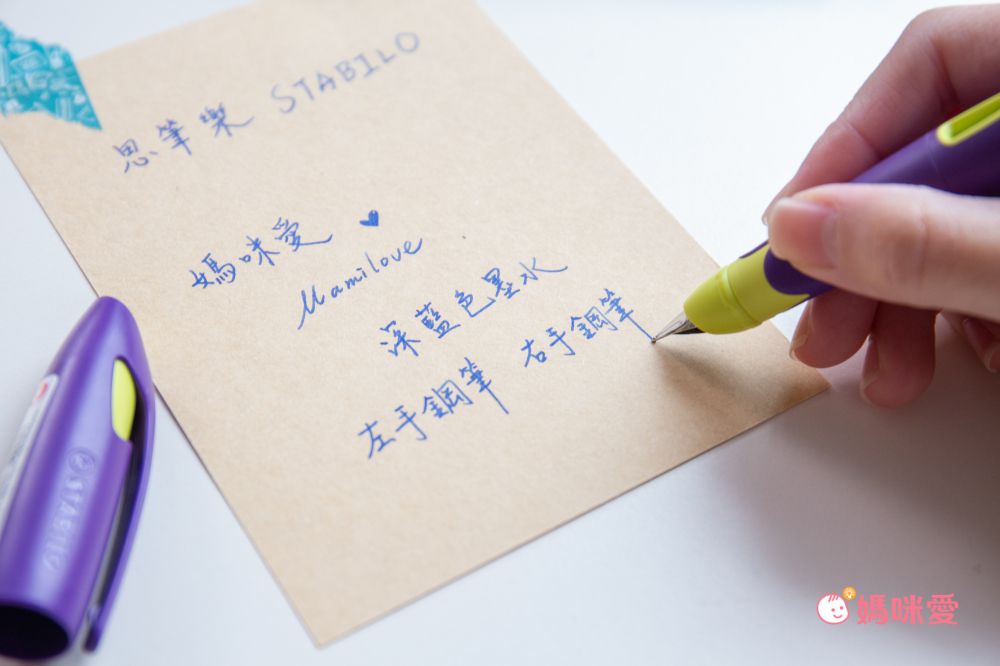 思筆樂 STABILO
媽咪愛
Mamilove
深藍色墨水
左手鋼筆 右手鋼筆
STABILO
媽咪愛